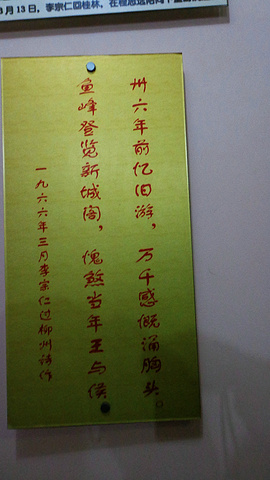 3月13日，李宗仁回桂林，在
卅六年前忆旧游，万千感慨涌胸头。
鱼峰登览新城阁，愧煞当年王与侯
一九六六年三月李宗仁过柳州诗作